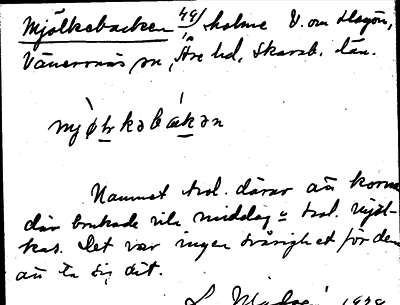 Mjölkebacken 49/ holme V. om Hagön,
Vänersnäs sn, Åse hd, Skarab. län.
mjø̀lkəbákən
Namnet trol. därav att korna
där brukade vila middag o trol. mjöl-
kas. Det var ingen svårighet för dem
att ta sig dit.
1939